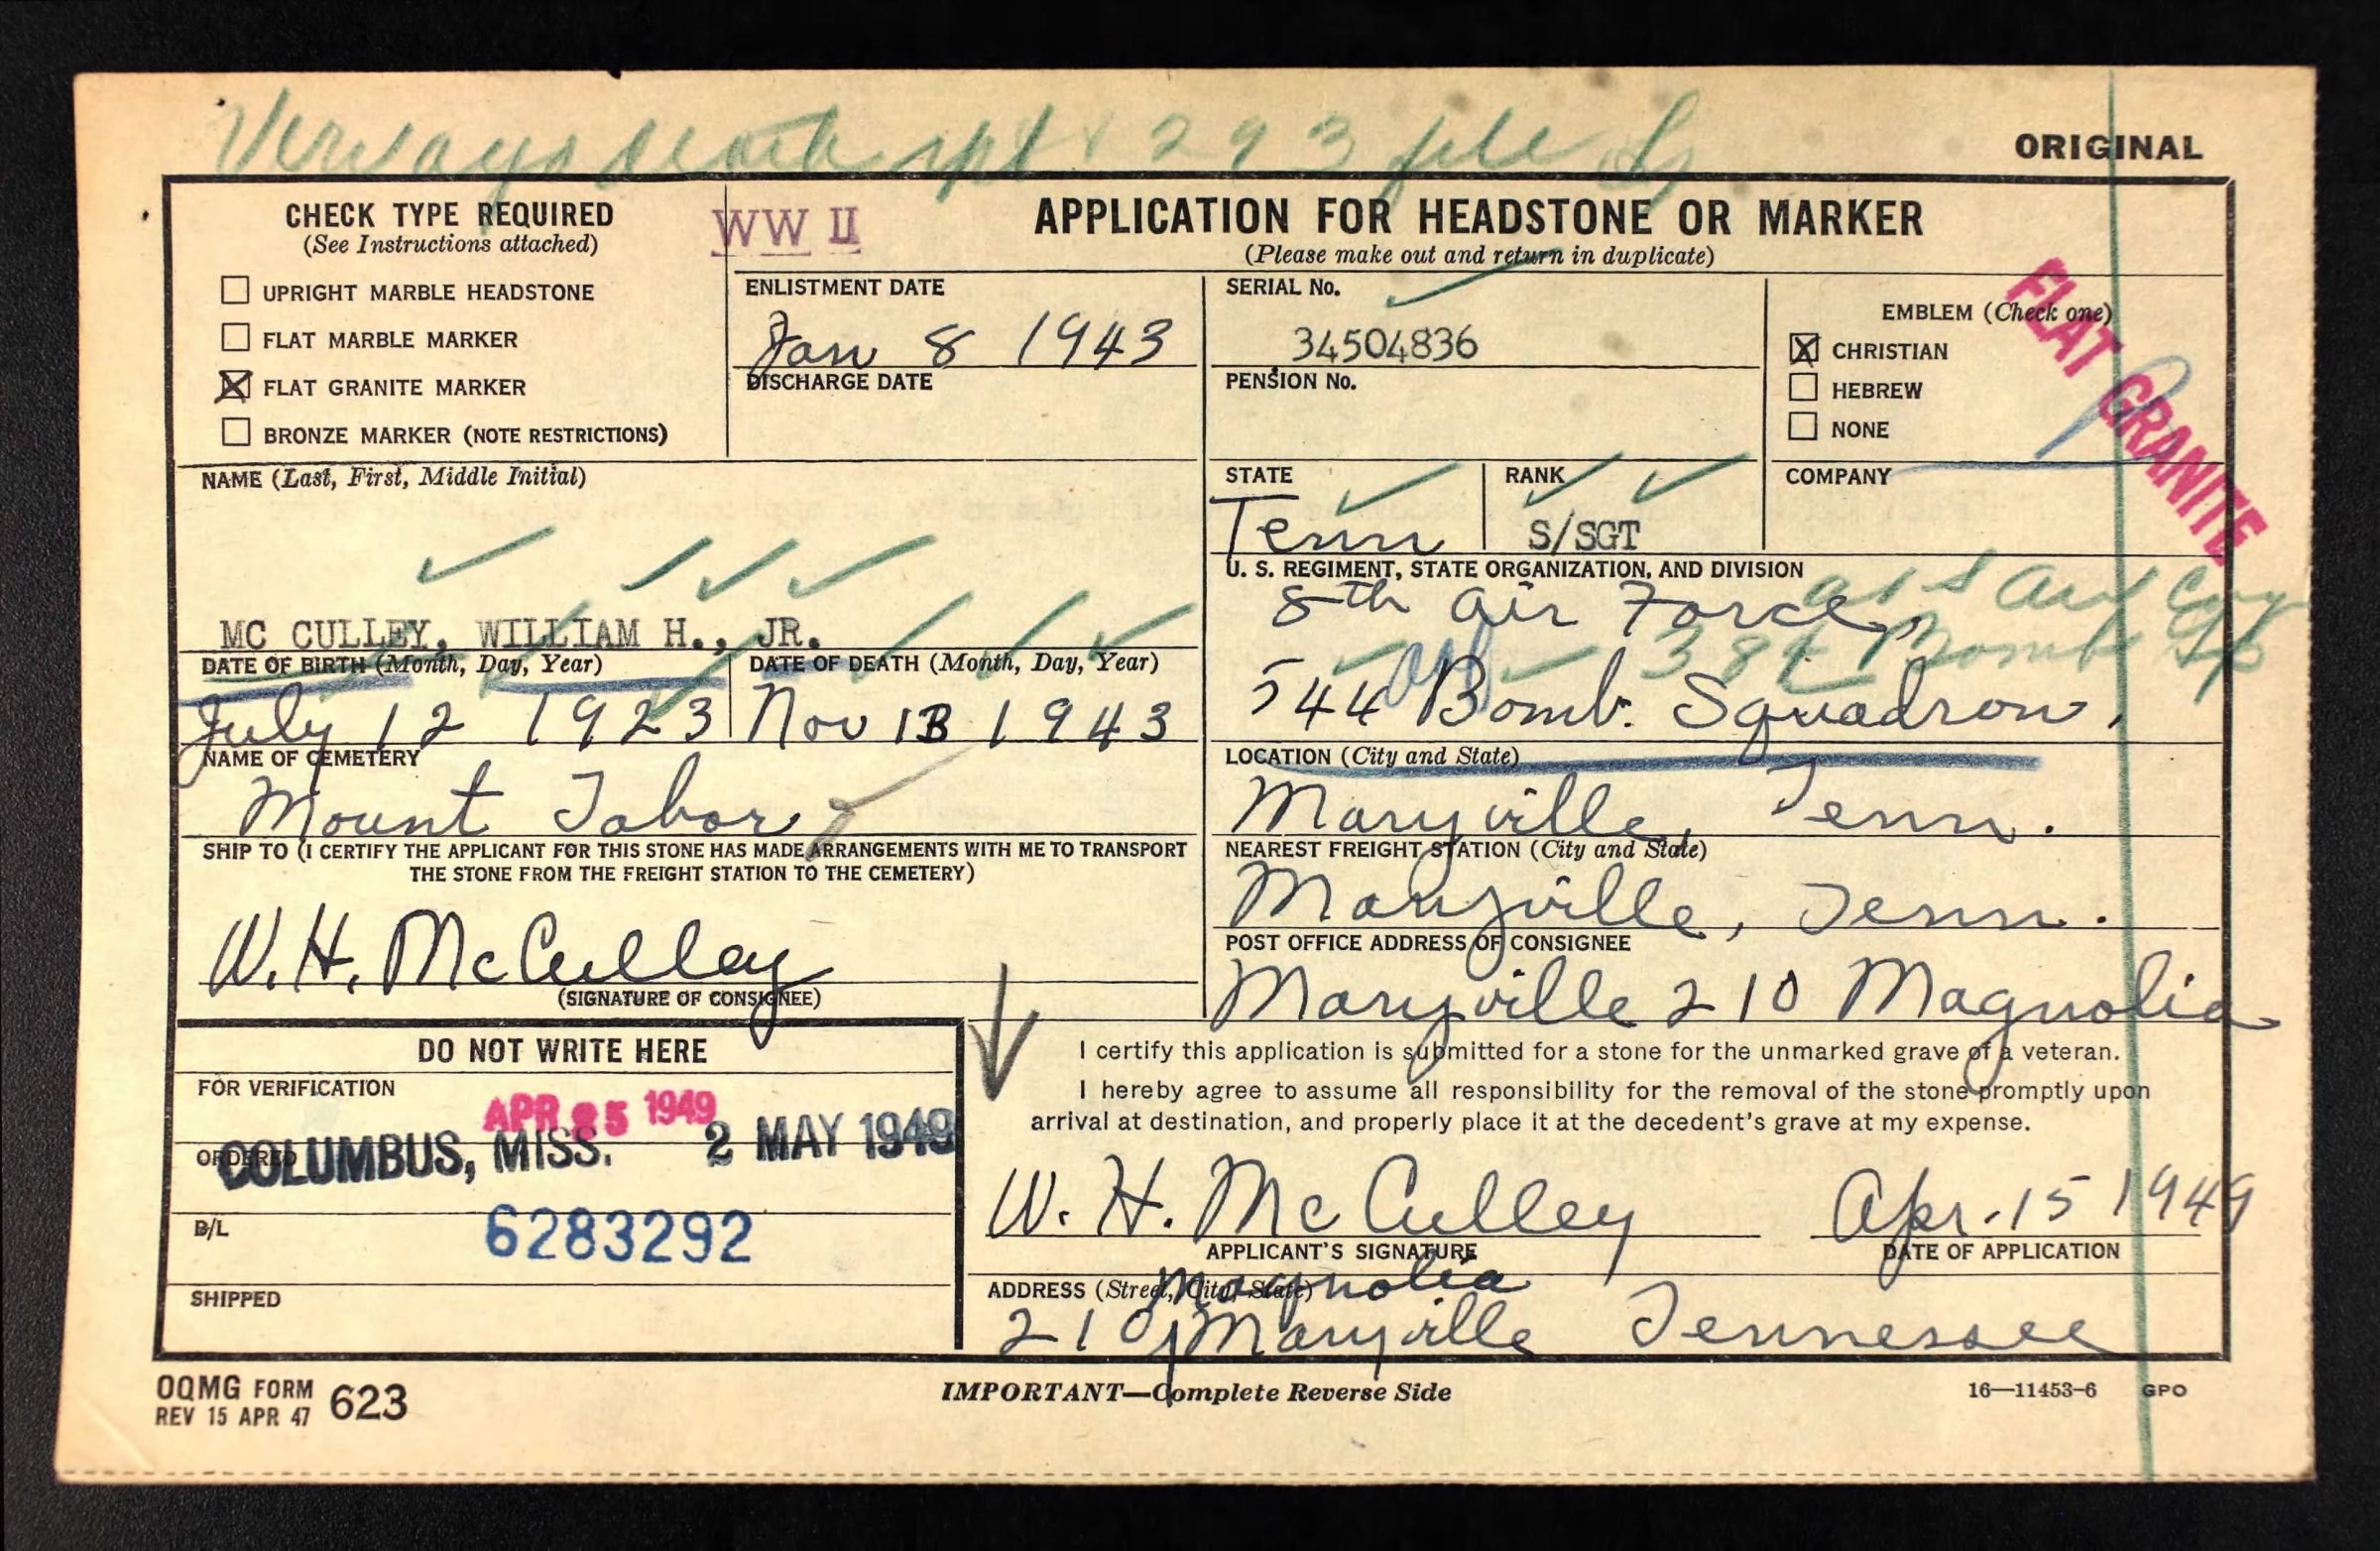 death rpt & 293 file
ORIGINAL
CHECK TYPE REQUIRED
(See Instructions attached)
UPRIGHT MARBLE HEADSTONE
FLAT MARBLE MARKER
FLAT GRANITE MARKER
BRONZE MARKER (NOTE RESTRICTIONS)
WW II
APPLICATION FOR HEADSTONE OR MARKER
(Please make out and return in duplicate)
ENLISTMENT DATE
Jan 8 1943
DISCHARGE DATE
SERIAL No.
34504836
PENSION No.
EMBLEM (Check one)
CHRISTIAN
HEBREW
NONE
FLAT GRANITE
NAME (Last, First, Middle Initial)
MC CULLEY, WILLIAM H., JR.
STATE
Tenn
RANK
S/SGT
COMPANY
U. S. REGIMENT, STATE ORGANIZATION, AND DIVISION
8th Air Force,
384 Bomb Gp
544 Bomb. Squadron,
DATE OF BIRTH (Month, Day, Year)
July 12 1923
DATE OF DEATH (Month, Day, Year)
Nov 13 1943
NAME OF CEMETERY
Mount Tabor
LOCATION (City and State)
Maryville, Tenn.
SHIP TO (I CERTIFY THE APPLICANT FOR THIS STONE HAS MADE ARRANGEMENTS WITH ME TO TRANSPORT
THE STONE FROM THE FREIGHT STATION TO THE CEMETERY)
W. H. McCulley
(SIGNATURE OF CONSIGNEE)
NEAREST FREIGHT STATION (City and State)
Maryville, Tenn.
POST OFFICE ADDRESS OF CONSIGNEE
Maryville 210 Magnolia
DO NOT WRITE HERE
FOR VERIFICATION
APR 25 1949
ORDERED
COLUMBUS, MISS. 2 MAY 1949
B/L
6283292
SHIPPED
I certify this application is submitted for a stone for the unmarked grave of a veteran.
I hereby agree to assume all responsibility for the removal of the stone promptly upon
arrival at destination, and properly place it at the decedent's grave at my expense.
W. H. McCulley
APPLICANT'S SIGNATURE
Apr. 15 1949
DATE OF APPLICATION
ADDRESS (Street, City, State)
Magnolia
210 Maryville Tennessee
OQMG FORM 623
REV 15 APR 47
IMPORTANT—Complete Reverse Side
16—11453-6 GPO